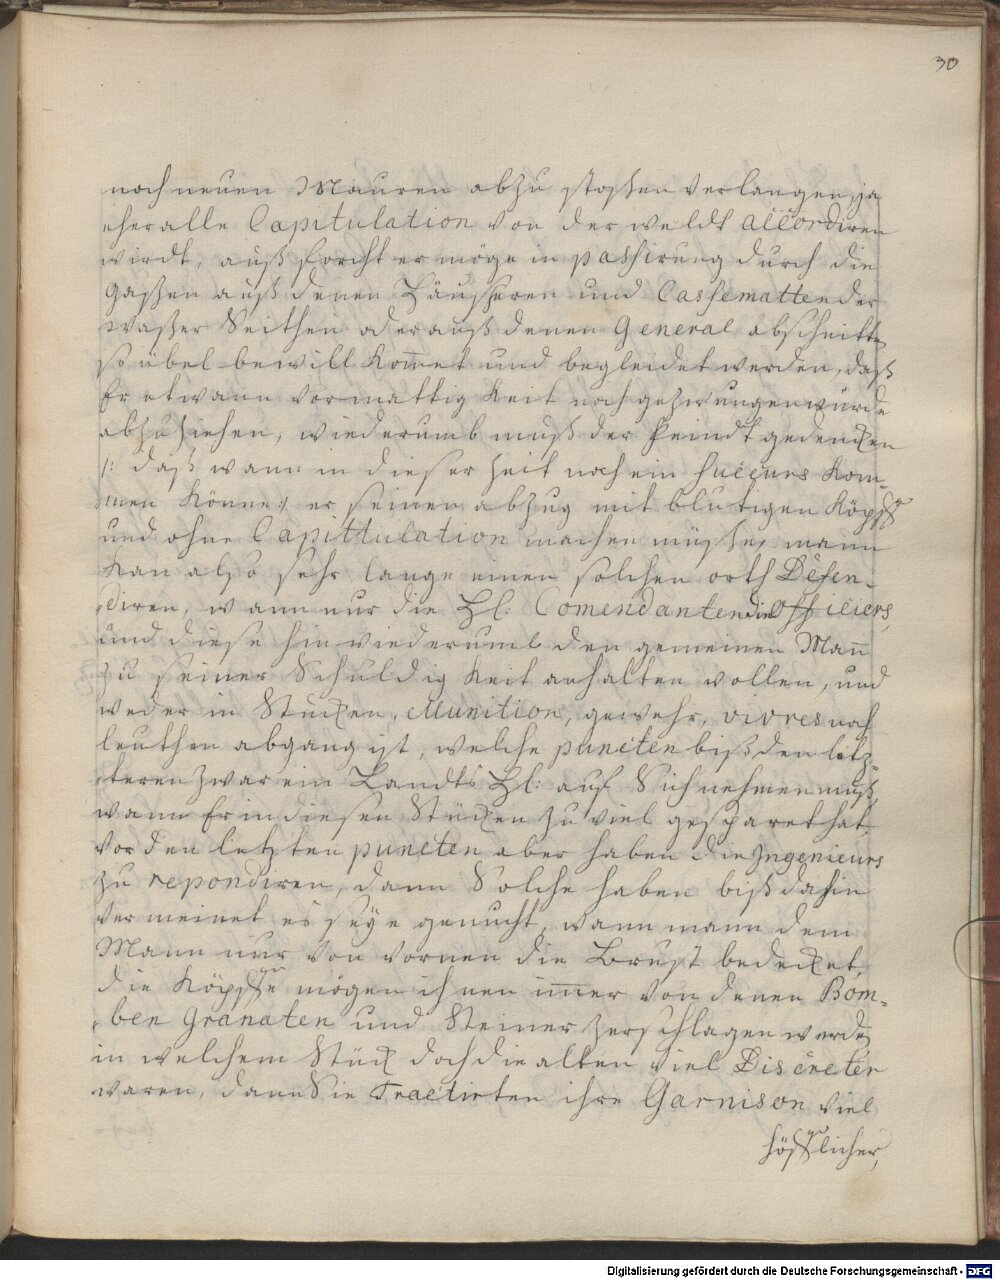 30
noch neuen Mauren abzu stossen verlangen, ja
eher alle Capitulation von der weldt accordiren
wirdt, auß forcht er möge in passirung durch die
Gaßen auß denen Häusseren und Cassematten der
Waßer Seithen oder auß denen General abschnitten
so übel bewillkom̄et und begleidet werden, daß
Er etwann vor mattigkeit noch gezwungen würde
abzuziehen, wiederumb muß der Feindt gedencken
/: daß wann in dieser Zeit noch ein Succurs kom-
men könne :/ er seinen abzug mit blutigen Köpff
und ohne Capittulation machen müsste, mann
kan also sehr lange einen solchen orth Defen-
diren, wann nur die Hl: Comendanten die officiers,
und diese hinwiederumb den gemeinen Man̄
zu seiner Schuldigkeit anhalten wollen, und
weder in Stucken, Munition, gewehr, vivres noch
leuthen abgang ist, welche puncten biß den letz-
teren zwar ein Landts Hl: auf Sich nehmen muß,
wann Er in diesen Stücken zu viel gesparet hat,
vor den letzten puncten aber haben die Ingenieurs
zu repondiren, dann Solche haben biß dahin
vermeinet es seye genucht, wann mann dem
Mann nur von vornen die Brust bedecket,
die Köpffe mögen ihnen im̄er von denen Bom-
ben Granaten und Steiner zerschlagen werden,
in welchem Stück doch die alten viel Discreter
waren, dann Sie Tractirten ihre Garnison viel
höfflicher,
Digitalisierung gefördert durch die Deutsche Forschungsgemeinschaft - DFG